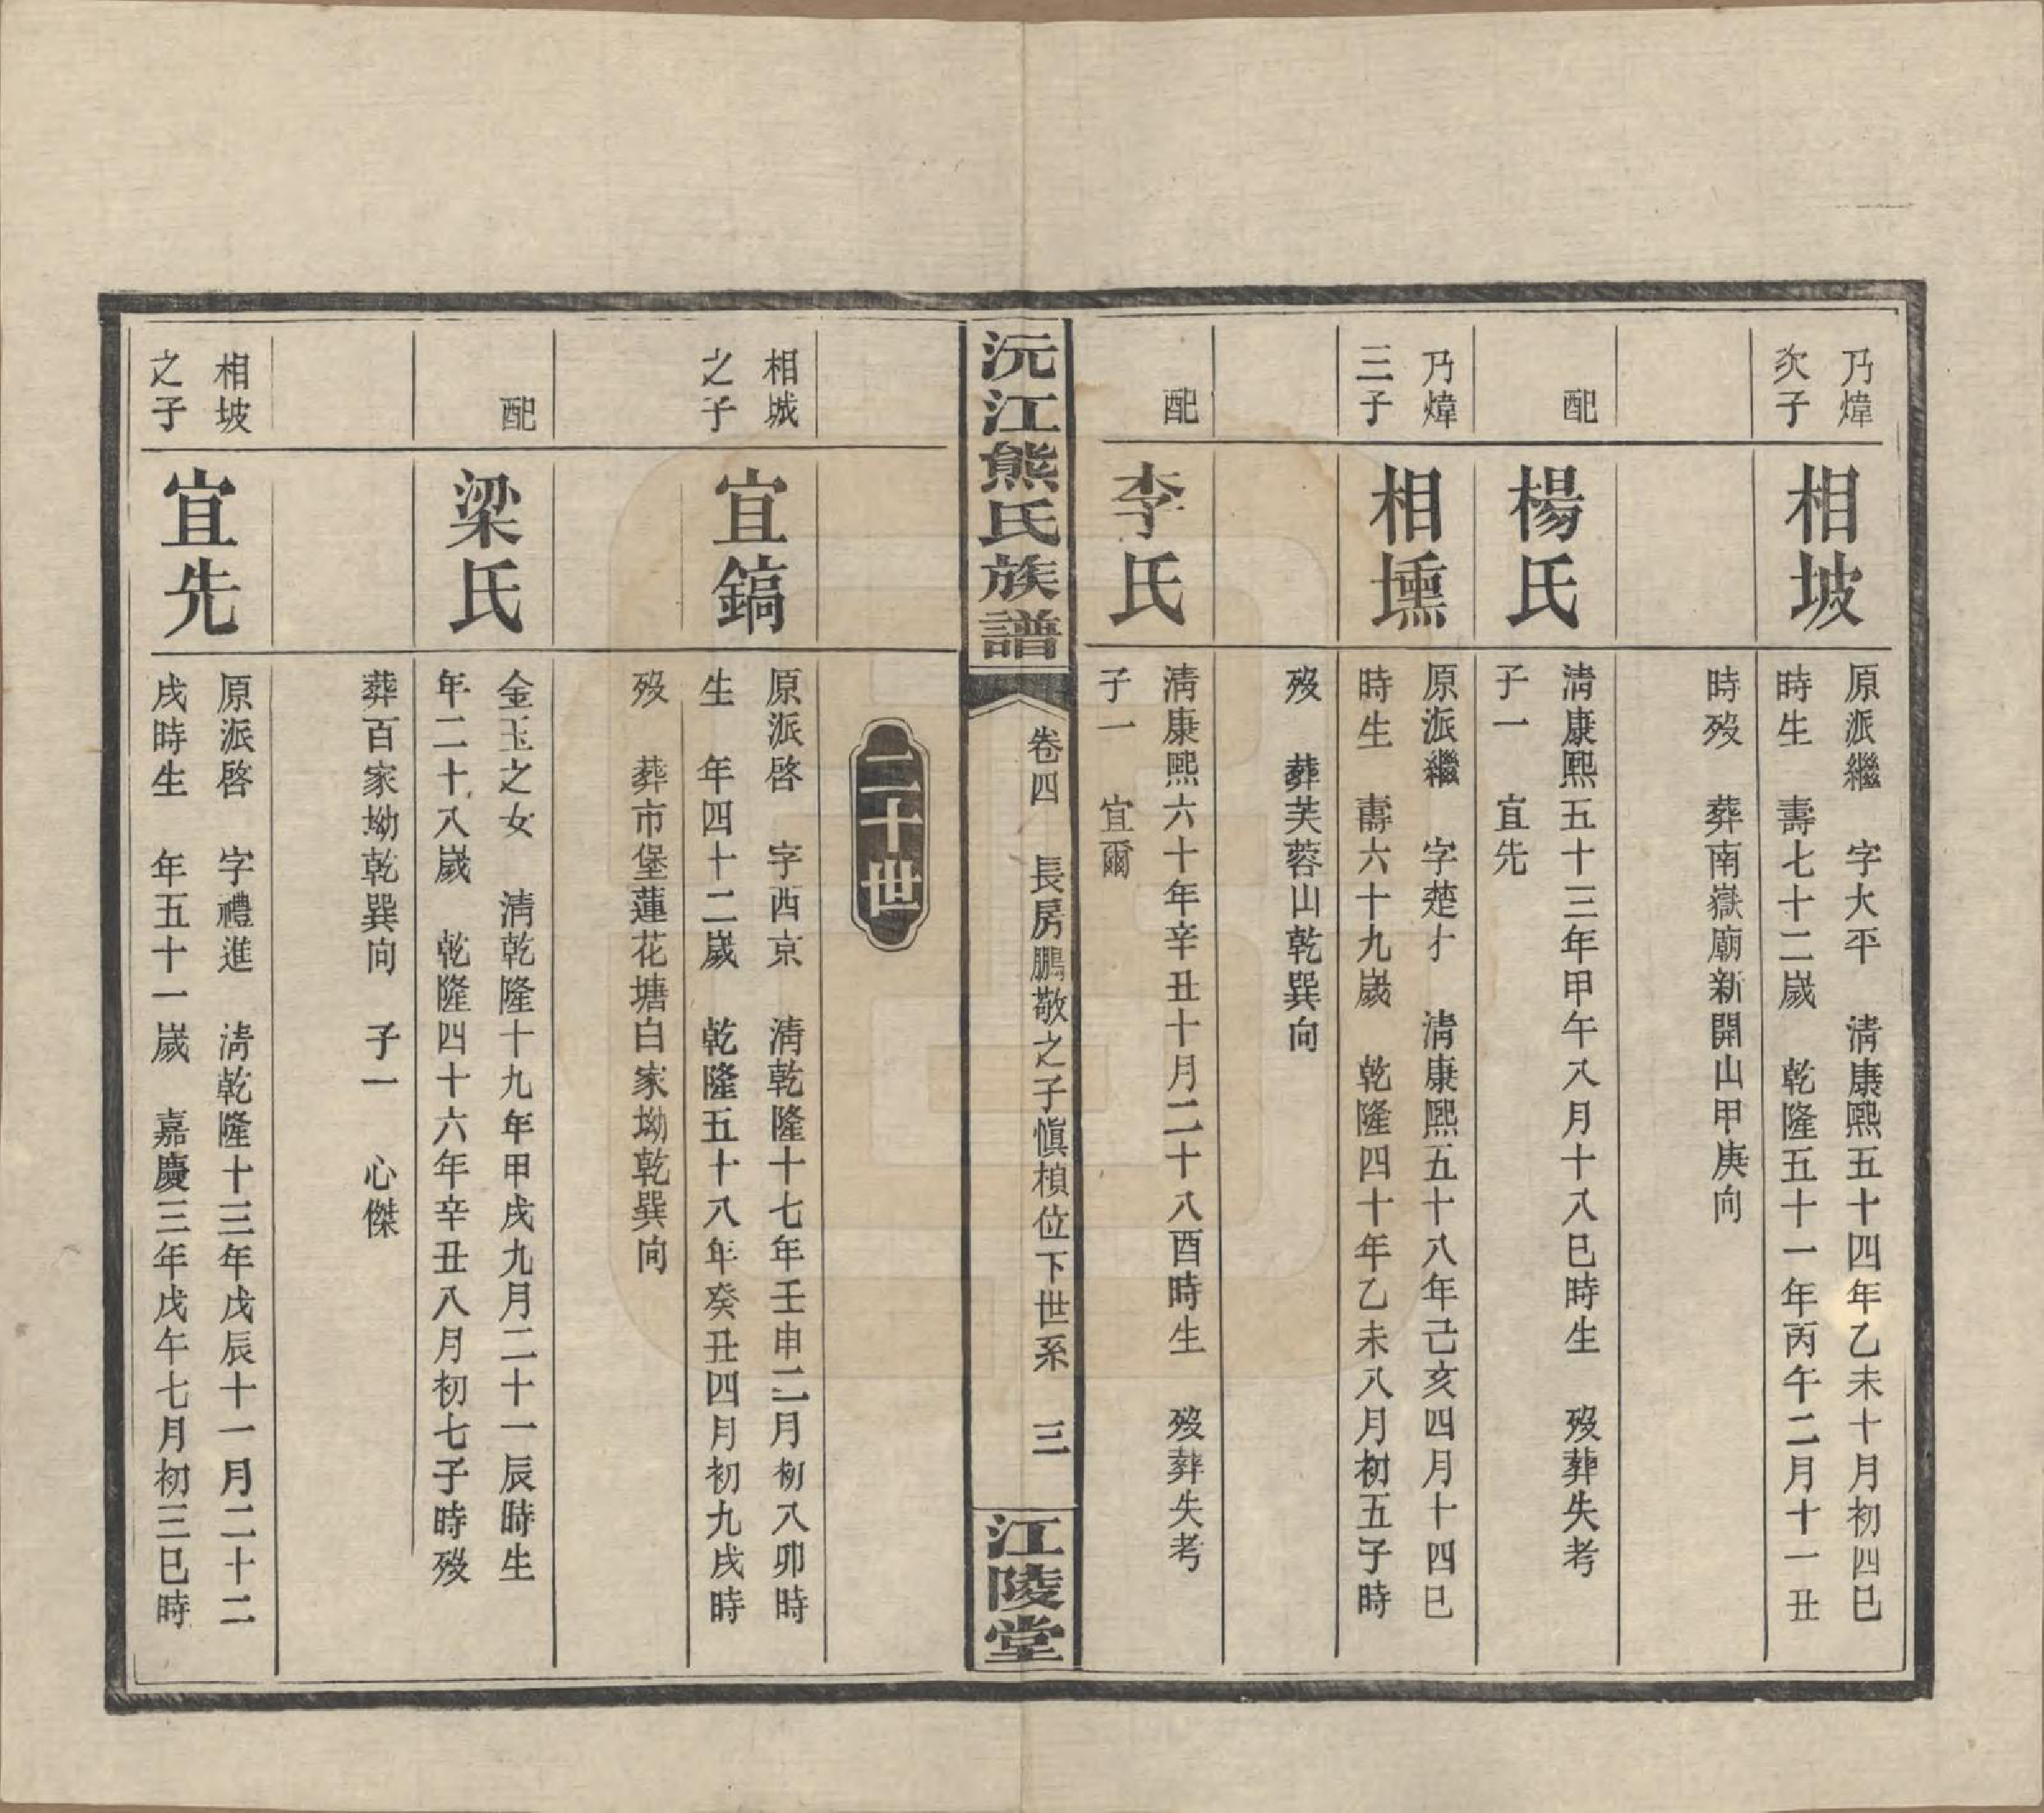 乃煒
次子
相坡
原派繼　字大平　清康熙五十四年乙未十月初四巳
時生　壽七十二嵗　乾隆五十一年丙午二月十一丑
時歿　葬南嶽廟新開山甲庚向
配
楊氏
清康熙五十三年甲午八月十八巳時生　歿葬失考
子一　宜先
乃煒
三子
相壎
原派繼　字楚才　清康熙五十八年己亥四月十四巳
時生　壽六十九嵗　乾隆四十年乙未八月初五子時
歿　葬芙蓉山乾巽向
配
李氏
清康熙六十年辛丑十月二十八酉時生　歿葬失考
子一　宜爾
沅江熊氏族譜
卷四　長房鵬敬之子慎楨位下世系　三
江陵堂
二十世
相城
之子
宜鎬
原派啓　字西京　清乾隆十七年壬申二月初八卯時
生　年四十二嵗　乾隆五十八年癸丑四月初九戌時
歿　葬市堡蓮花塘白家坳乾巽向
配
梁氏
金玉之女　清乾隆十九年甲戌九月二十一辰時生
年二十八嵗　乾隆四十六年辛丑八月初七子時歿
葬百家坳乾巽向　子一　心傑
相坡
之子
宜先
原派啓　字禮進　清乾隆十三年戊辰十一月二十二
戌時生　年五十一嵗　嘉慶三年戊午七月初三巳時